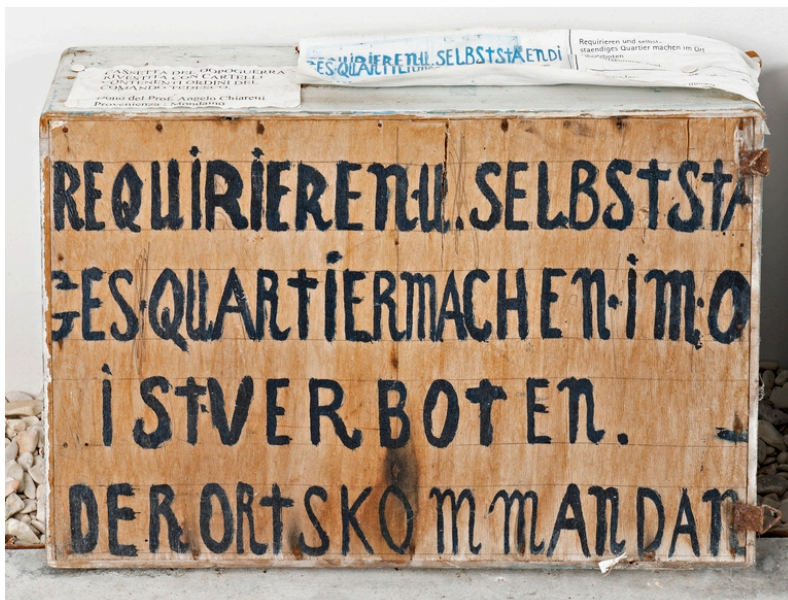 CASSETTA DEL DOPOGUERRA
RIVESTITA CON CARTELLI
CONTENENTI ORDINI DEL
COMANDO TEDESCO.
Dono del Prof. Angelo Chiaretti
Provenienza: Mondaino
REQUIRIEREN U. SELBSTSTAENDI
GES·QUARTIER
Requirieren und selbst-
staendiges Quartier machen im Ort
REQUIRIEREN·U.SELBSTSTA
GES·QUARTIERMACHEN·IM·O
ISTVERBOTEN.
DERORTSKOMMANDAN